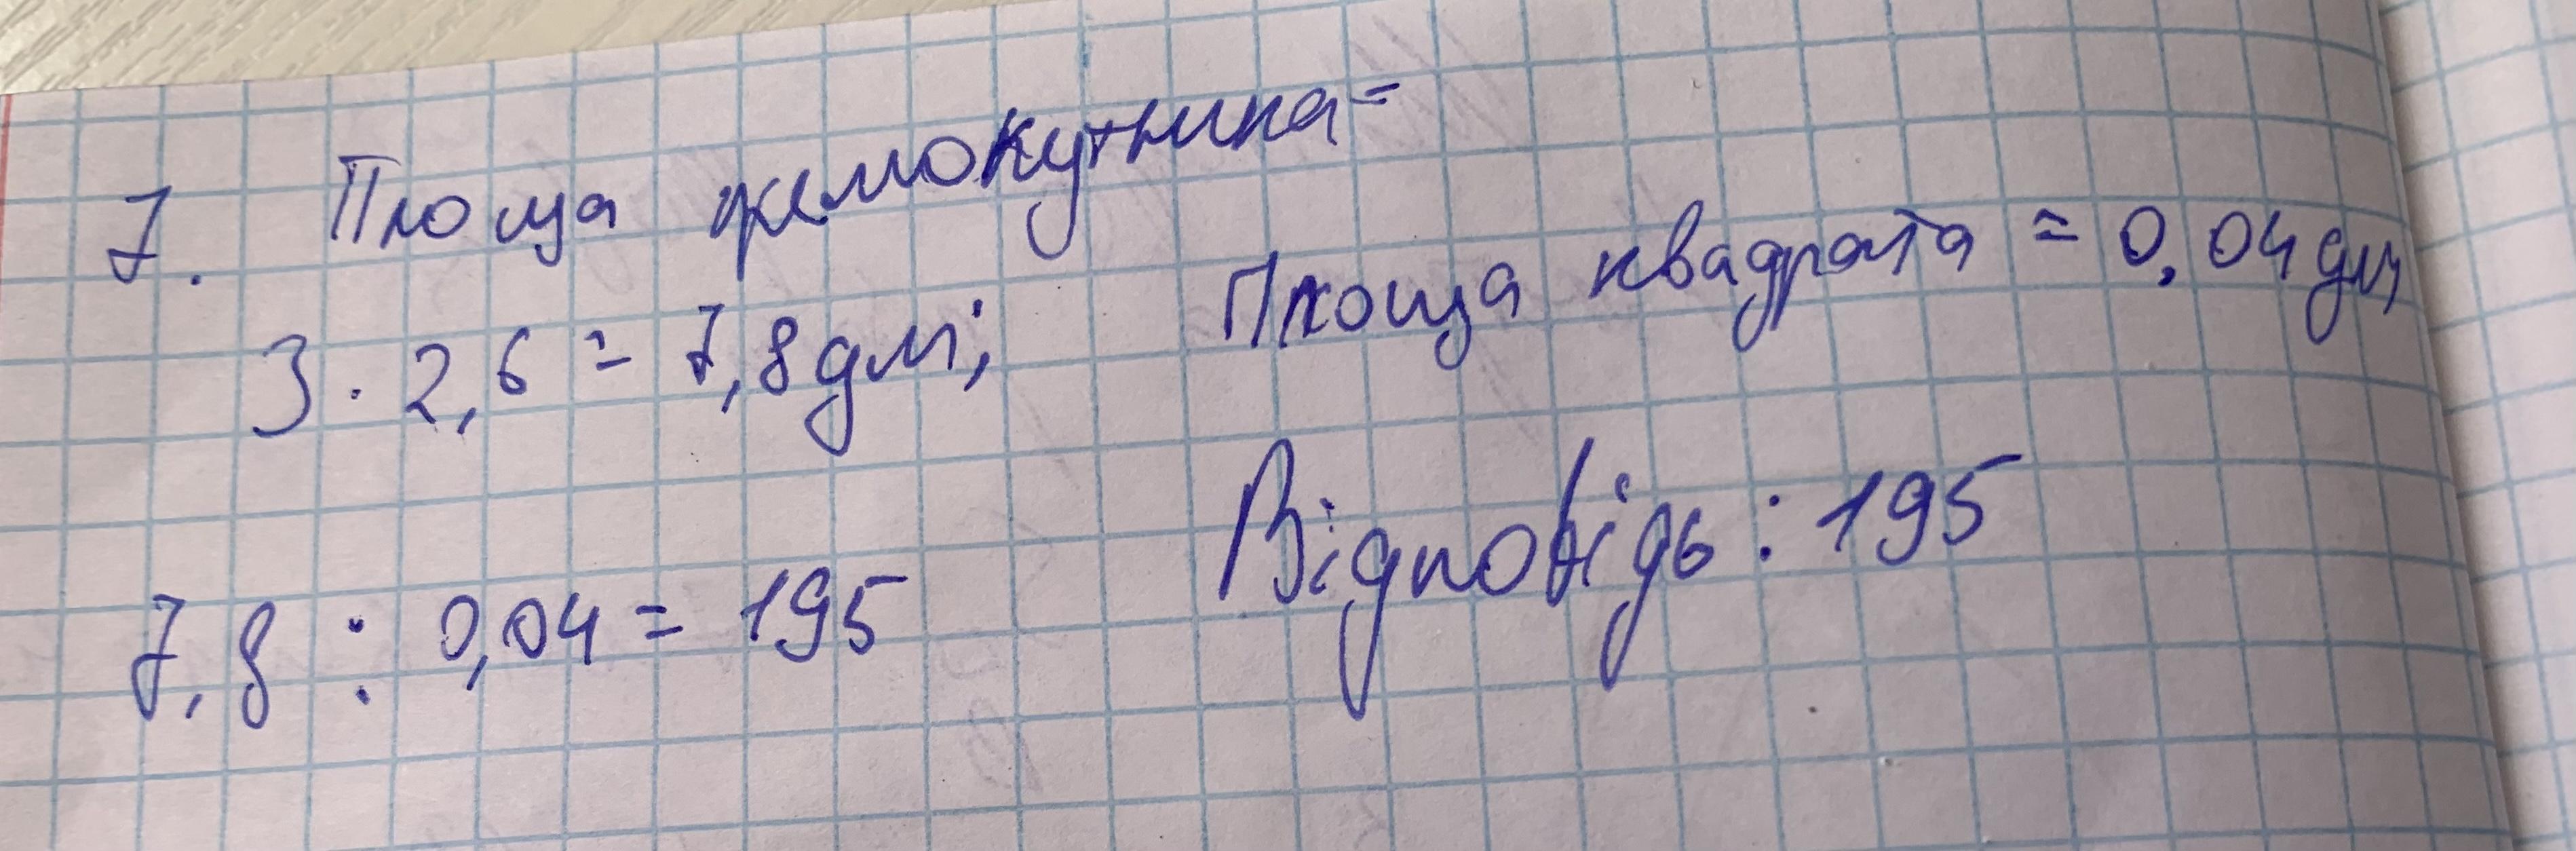 7. Площа прямокутника =
3 · 2,6 = 7,8 дм;
Площа квадрата = 0,04 дм
7,8 : 0,04 = 195
Відповідь : 195